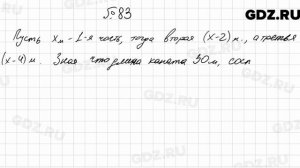 GDZ.RU
№ 83
Пусть x м – 1-я часть, тогда вторая (x-2) м., а третья
(x-4) м. Зная что длина каната 30 м, сост